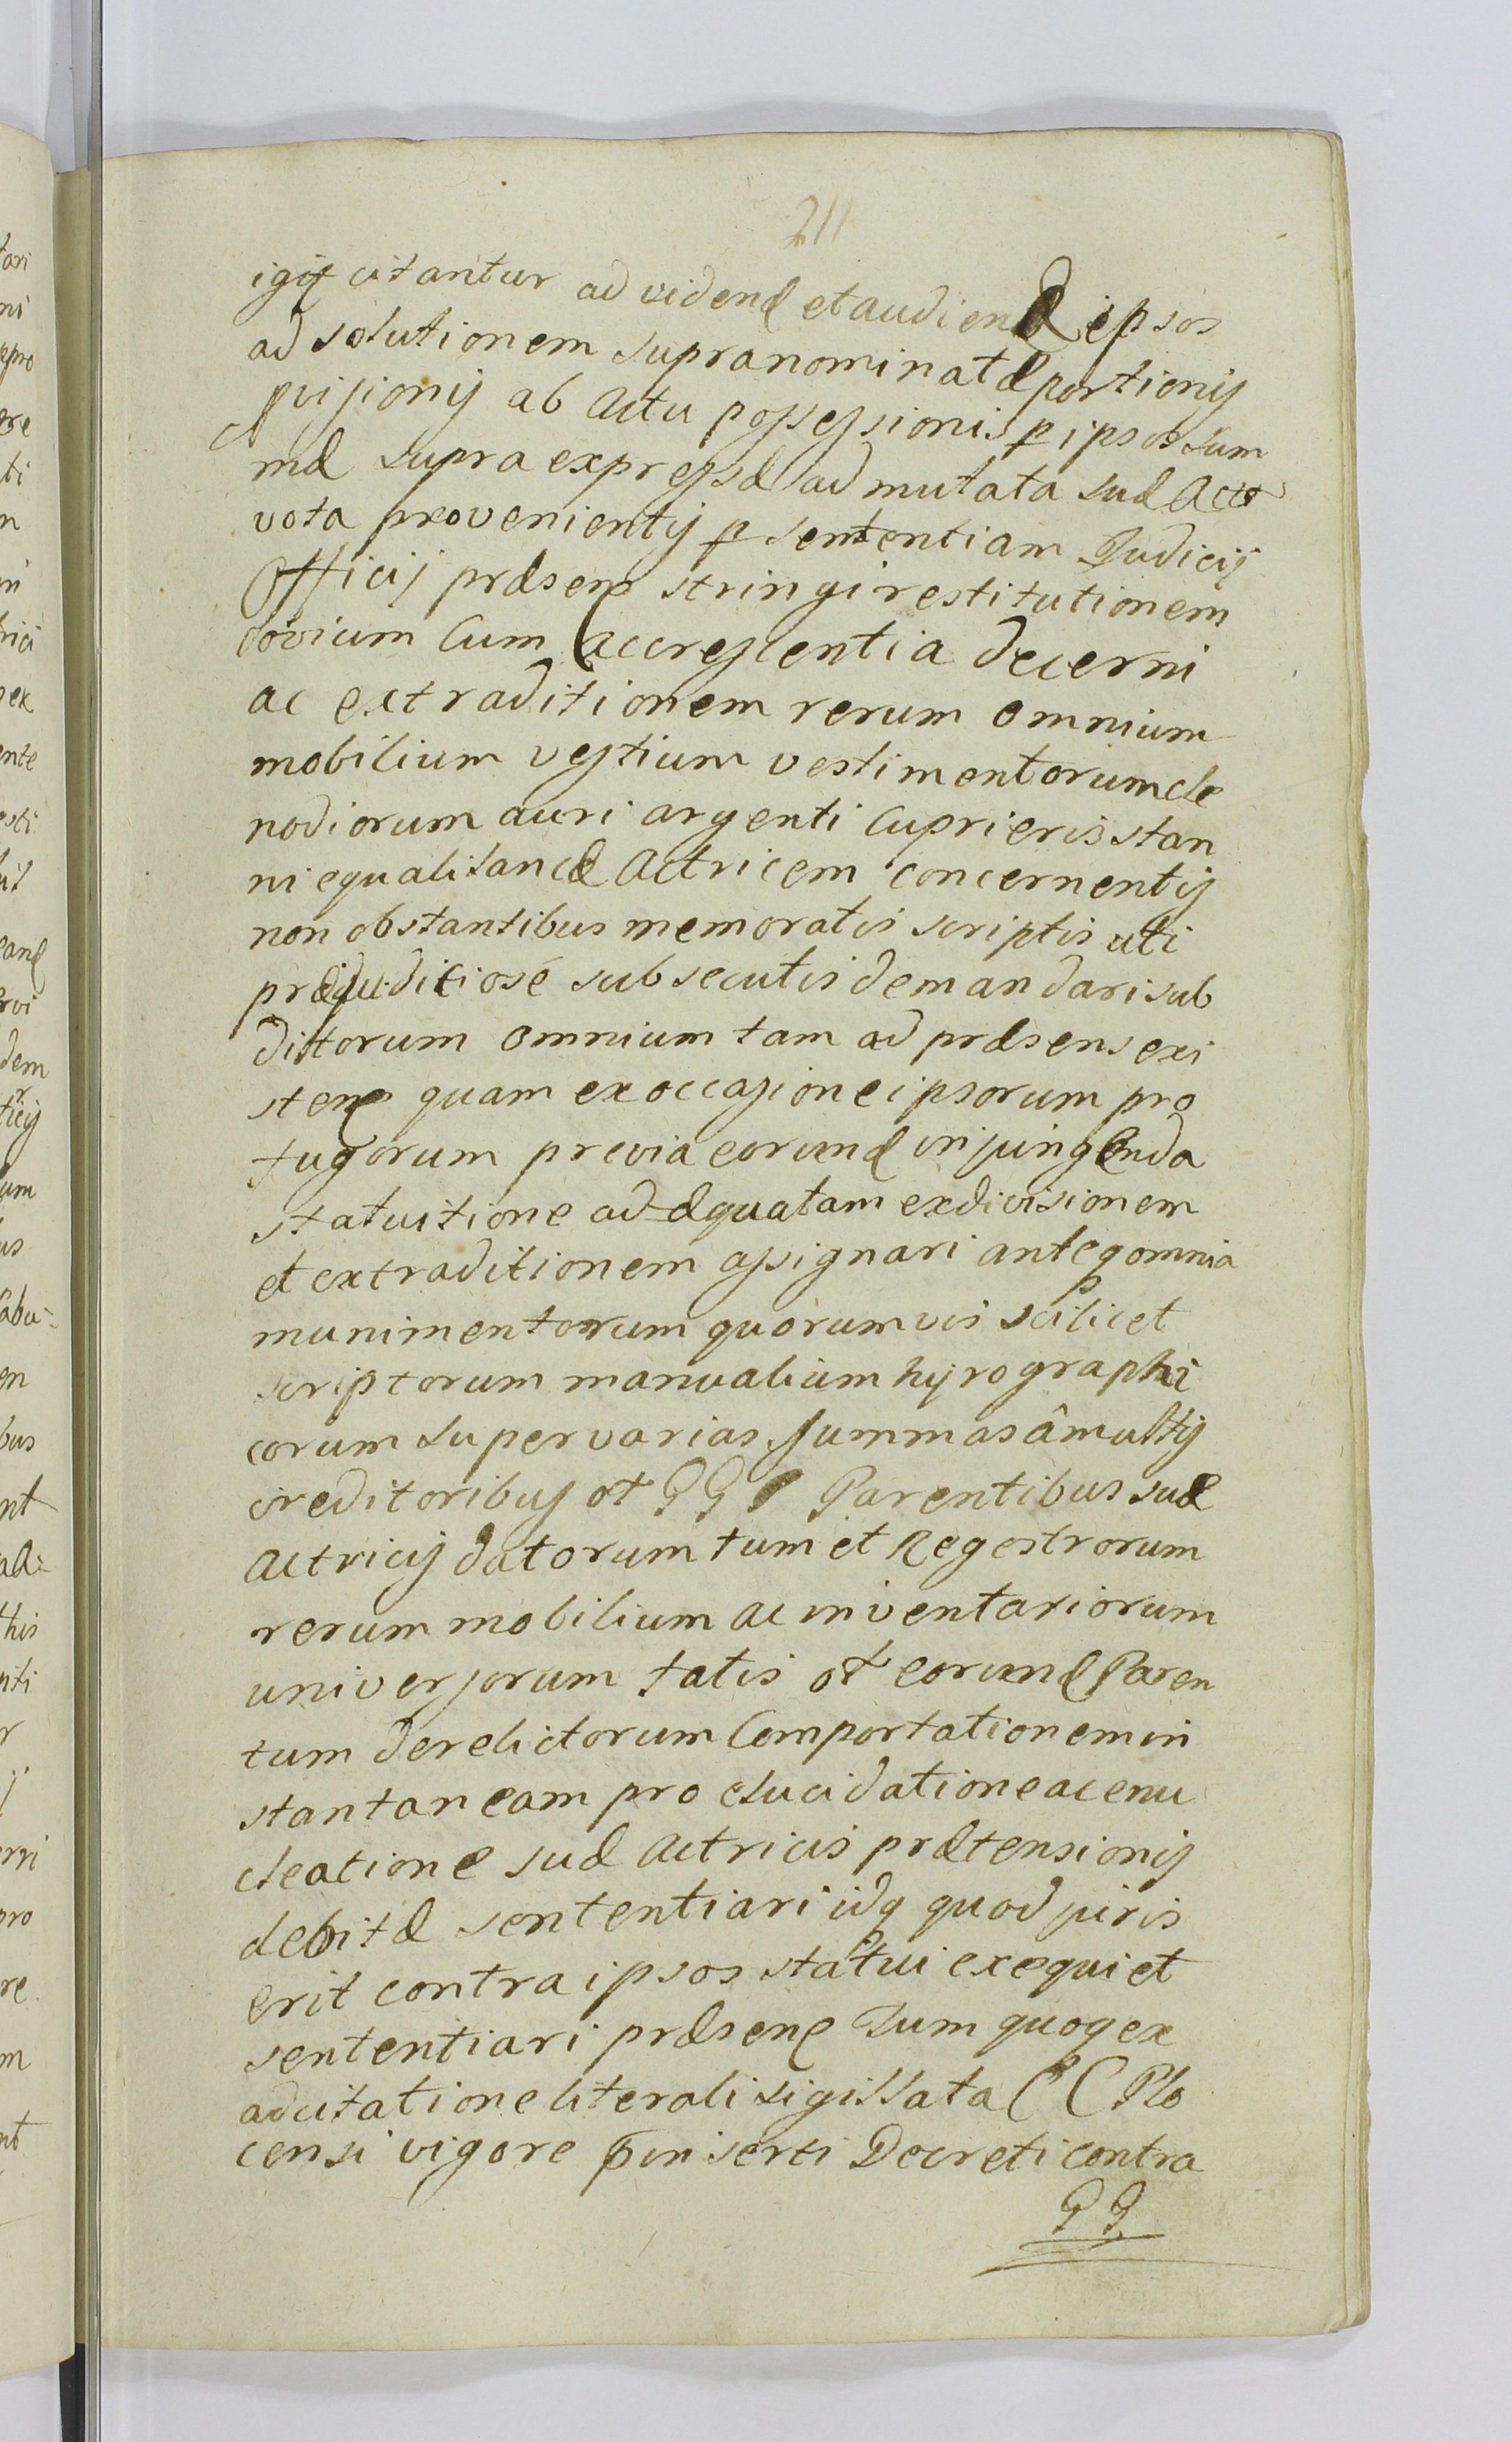 211
igit citantur ad vidend et audiend ipsos
ad solutionem supranominatæ portionis
pvisionis ab actu possessionis p ipsos sum
mæ supra expressæ ad mutata sua Act
vota provenientis p sententiam Judicij
Officij præsen stringi restitutionem
bovium cum accrescentia decerni
ac extraditionem rerum omnium
mobilium vestium vestimentorum cle
nodiorum auri argenti cupri eris stan
ni equalitancæ Actricem concernentis
non obstantibus memoratis scriptis uti
præjuditiosé subsecutis demandari sub
dittorum omnium tam ad præsens exi
sten quam ex occasione ipsorum pro
fugorum previa eorund injungenda
statuitione adæquatam exdivisionem
et extraditionem assignari anteq omnia
munimentorum quorumvis scilicet
scriptorum manualium hyrographi
corum super varias summas â multis
creditoribus ot GG Parentibus suæ
Actricis datorum tum et Regestrorum
rerum mobilium ac inventariorum
universorum talis ot eorund Paren
tum derelictorum Comportationem in
stantaneam pro elucidatione ac enu
cleatione suæ Actricis prætensionis
debitæ sententiari idq quod juris
erit contra ipsos statui exequi et
sententiari præsen Tum quoq ex
adcitatione literali sigillata CC Plo
censi vigore pinserti Decreti contra
GG